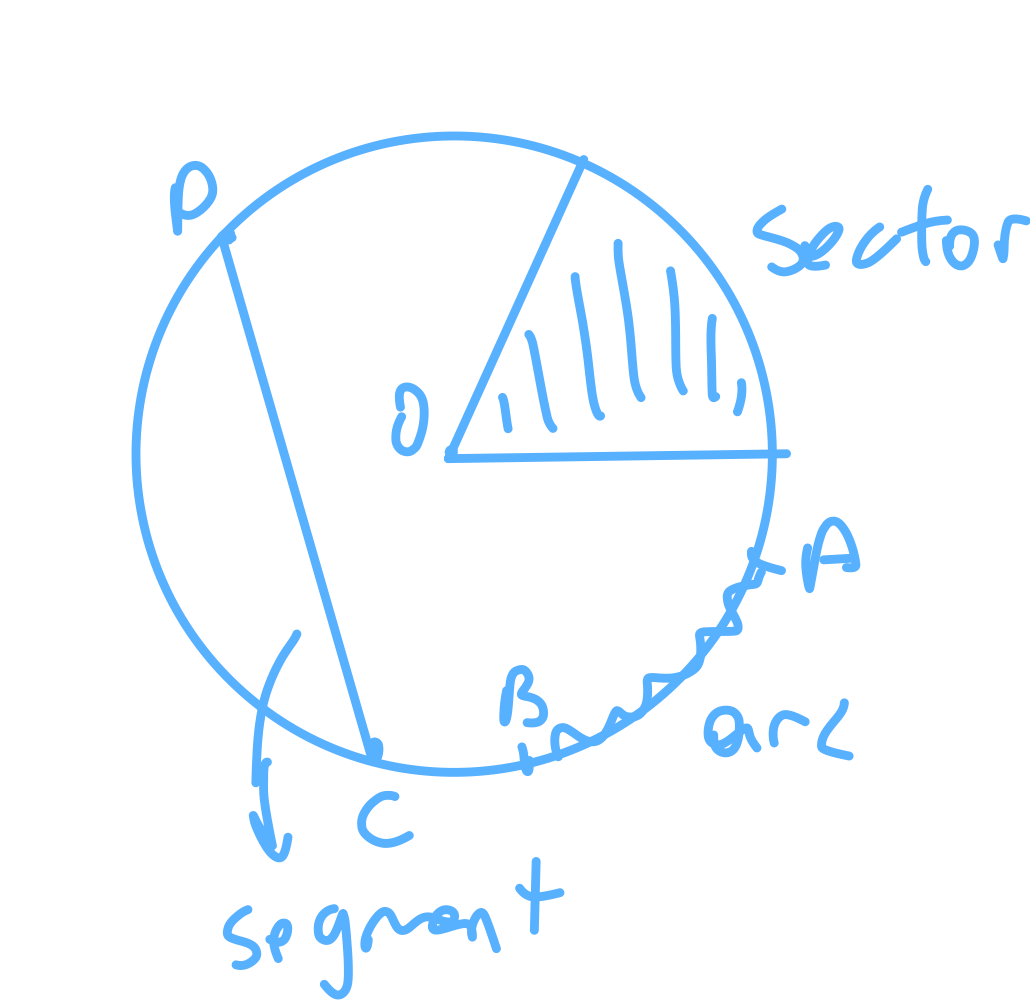 D
sector
O
A
B
arc
C
segment